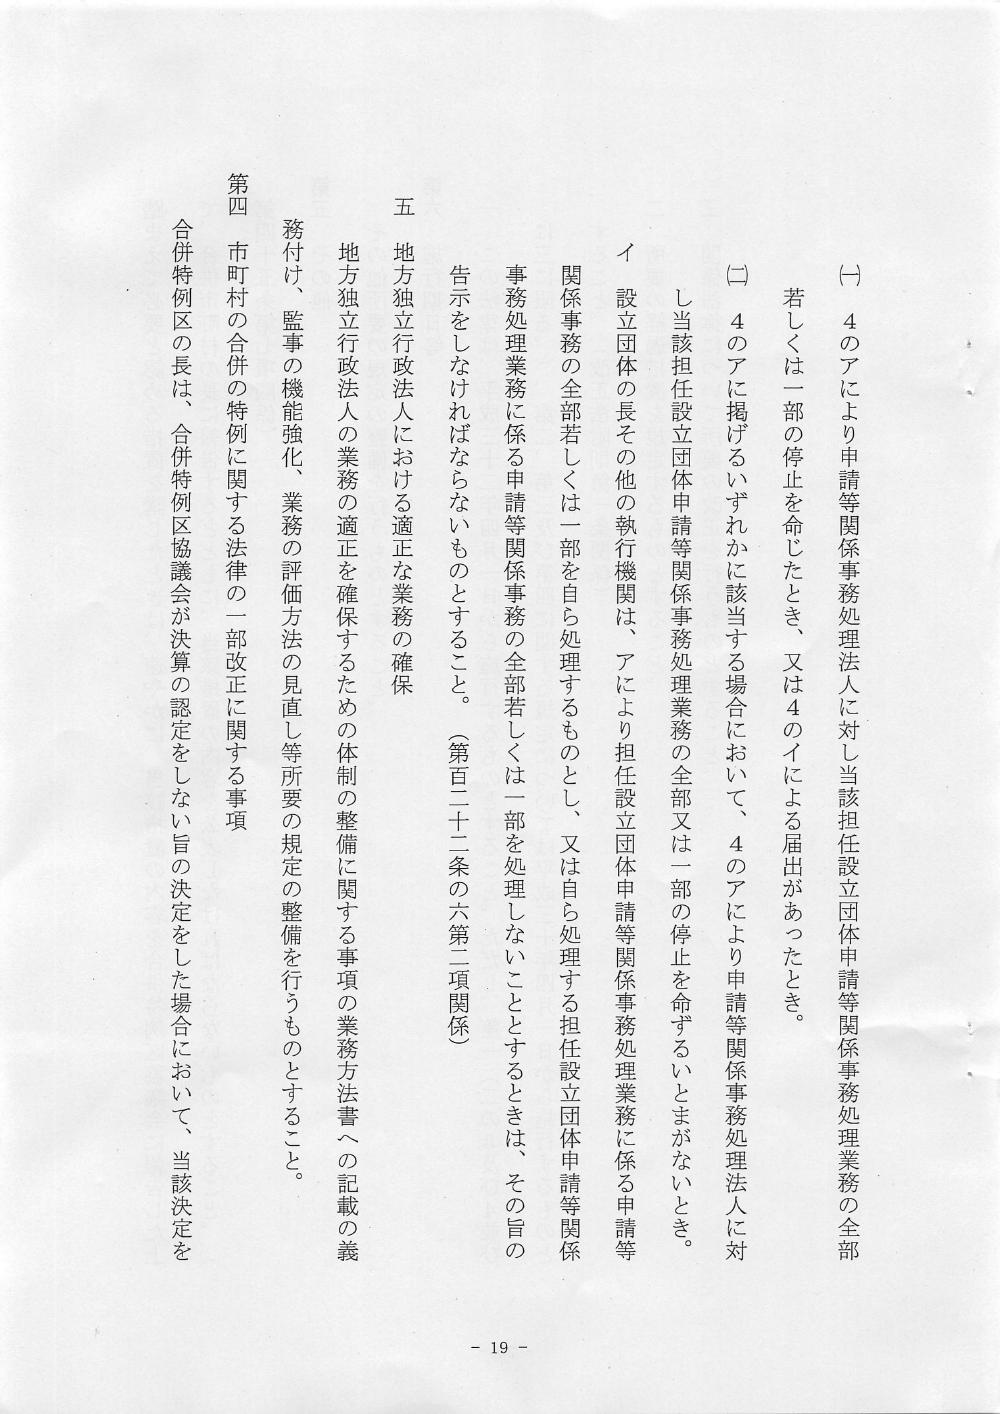 ㈠　４のアにより申請等関係事務処理法人に対し当該担任設立団体申請等関係事務処理業務の全部
若しくは一部の停止を命じたとき、又は４のイによる届出があったとき。
㈡　４のアに掲げるいずれかに該当する場合において、４のアにより申請等関係事務処理法人に対
し当該担任設立団体申請等関係事務処理業務の全部又は一部の停止を命ずるいとまがないとき。
イ　設立団体の長その他の執行機関は、アにより担任設立団体申請等関係事務処理業務に係る申請等
関係事務の全部若しくは一部を自ら処理するものとし、又は自ら処理する担任設立団体申請等関係
事務処理業務に係る申請等関係事務の全部若しくは一部を処理しないこととするときは、その旨の
告示をしなければならないものとすること。（第百二十二条の六第二項関係）
五　地方独立行政法人における適正な業務の確保
地方独立行政法人の業務の適正を確保するための体制の整備に関する事項の業務方法書への記載の義
務付け、監事の機能強化、業務の評価方法の見直し等所要の規定の整備を行うものとすること。
第四　市町村の合併の特例に関する法律の一部改正に関する事項
合併特例区の長は、合併特例区協議会が決算の認定をしない旨の決定をした場合において、当該決定を
- 19 -